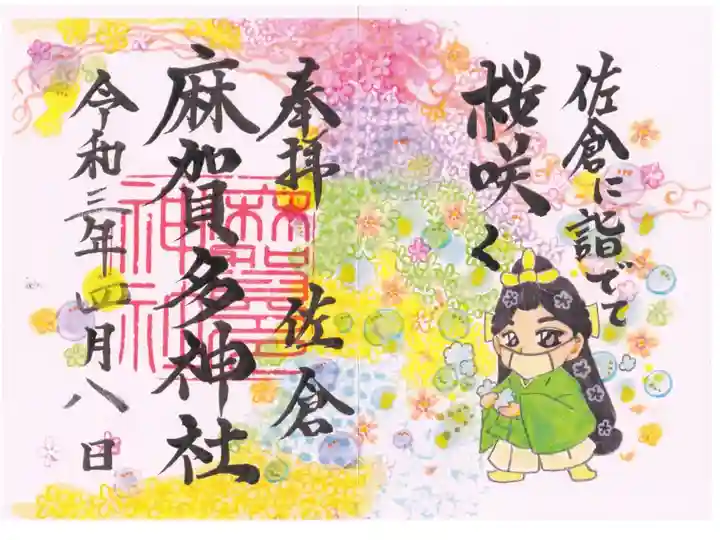 佐倉に詣でて
桜咲く
奉拝 佐倉
麻賀多神社
令和三年四月八日